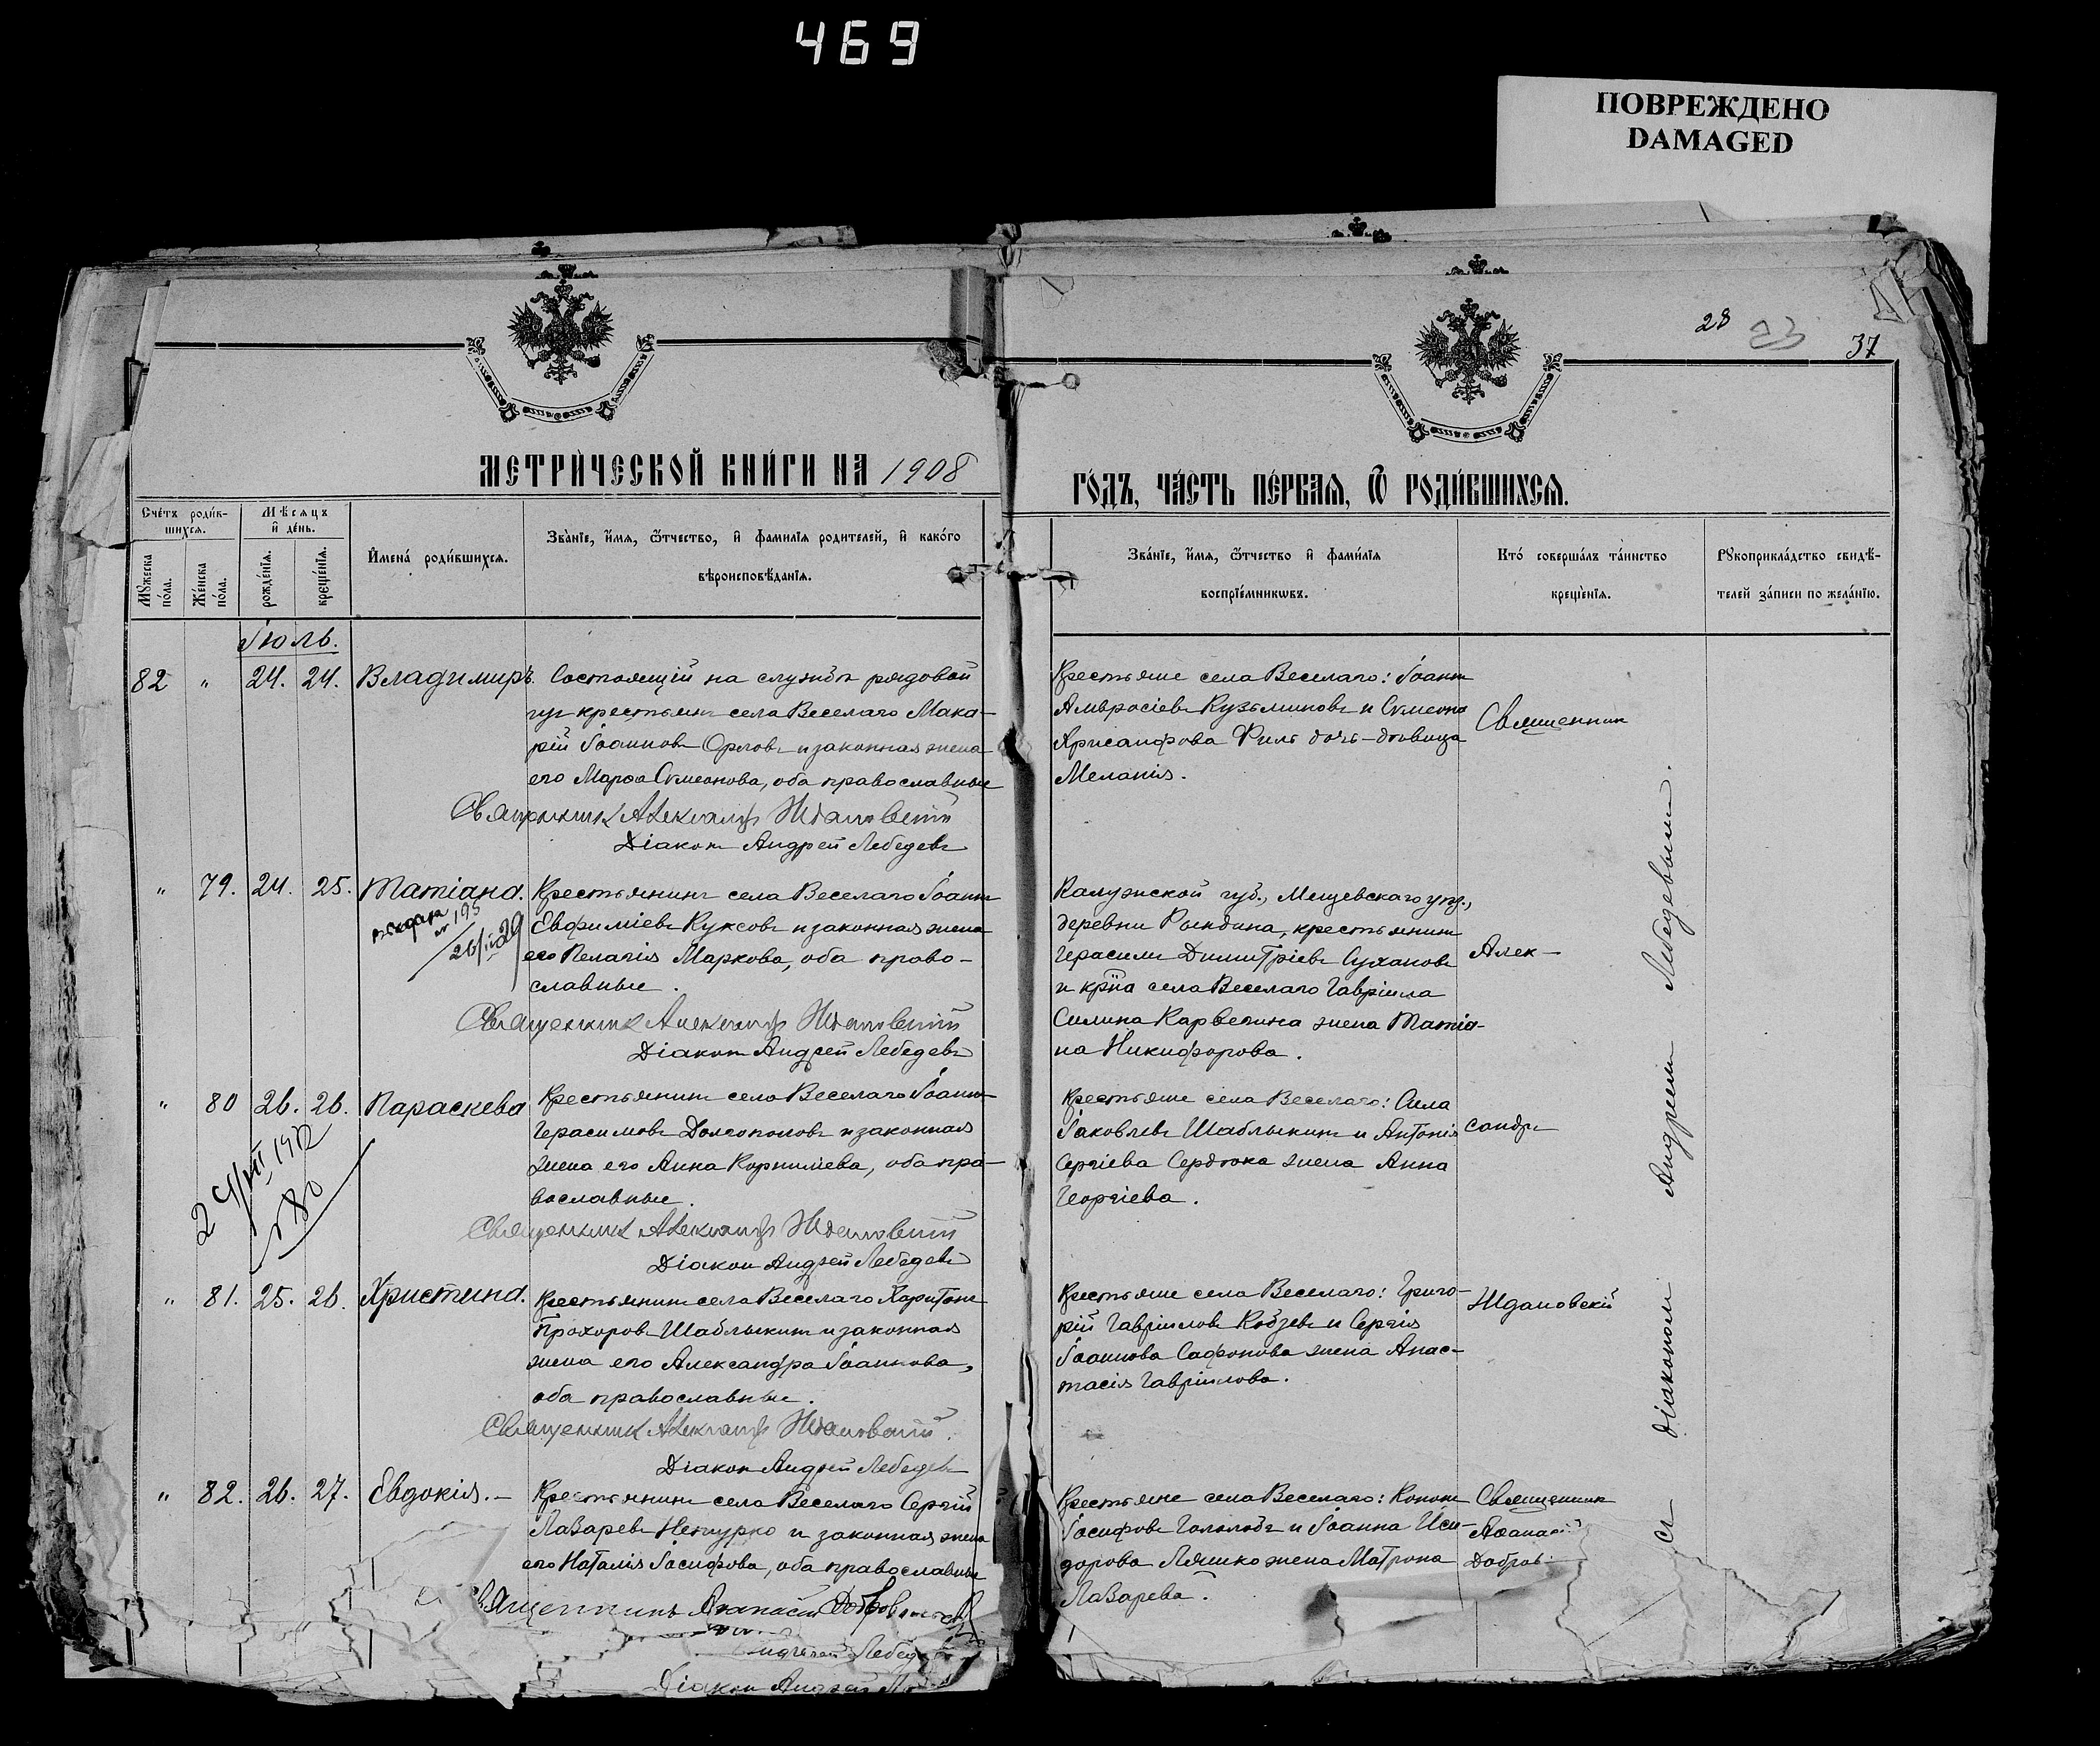 469
ПОВРЕЖДЕНО
DAMAGED
28 23
37
МЕТРИ́ЧЕСКОЙ КНИ́ГИ НА 1908
ГО́ДЪ, ЧА́СТЬ ПЕ́РВАѦ, Ѿ РОДИ́ВШИХСѦ.
Сче́тъ роди́в-
шихсѧ.
Мѣ́сѧцъ
и҆ де́нь.
Мꙋ́жеска
по́ла.
Же́нска
по́ла.
рожде́нїѧ.
креще́нїѧ.
И҆мена̀ роди́вшихсѧ.
Зва́нїе, и҆́мѧ, ѻ҆́тчество, и҆ фамилїѧ родителей, и҆ како́гѡ
вѣроисповѣ́данїѧ.
Зва́нїе, и҆́мѧ, ѻ҆́тчество и҆ фами́лїѧ
воспрїе́мникѡвъ.
Кто̀ соверша́лъ та́инство
креще́нїѧ.
Рꙋкоприкла́дство свидѣ́-
телей за́писи по жела́нїю.
Іюль.
82 " 24. 24. Владимиръ.
Состоящій на службѣ рядовой
изъ крестьянъ села Веселаго Мака-
рій Іоанновъ Орловъ и законная жена
его Марѳа Сѵмеонова, оба православные
Священникъ Александръ Ждановскій
Діаконъ Андрей Лебедевъ
Крестьяне села Веселаго: Іоаннъ
Амвросіевъ Кузьминовъ и Сѵмеона
Хрисанфова Филь дочь-дѣвица
Меланія.
Священникъ
" 79. 24. 25. Татіана.
195
Крестьянинъ села Веселаго Іоаннъ
Евфиміевъ Куксовъ и законная жена
его Пелагія Маркова, оба право-
славные.
Священникъ Александръ Ждановскій
Діаконъ Андрей Лебедевъ
Калужской губ., Мещевскаго уѣз.,
деревни Рындина, крестьянинъ
Герасимъ Димитріевъ Сухановъ
и кр̃на села Веселаго Гавріила
Силина Карвепина жена Татіа-
на Никифорова.
Алек-
" 80 26. 26. Параскева
180
Крестьянинъ села Веселаго Іоаннъ
Герасимовъ Долгополовъ и законная
жена его Анна Корниліева, оба пра-
вославные.
Священникъ Александръ Ждановскій
Діаконъ Андрей Лебедевъ
Крестьяне села Веселаго: Сила
Іаковлевъ Шаблыкинъ и Антонія
Сергіева Сердюка жена Анна
Георгіева.
сандръ
" 81. 25. 26. Христина.
Крестьянинъ села Веселаго Харитонъ
Прохоровъ Шаблыкинъ и законная
жена его Александра Іоаннова,
оба православные.
Священникъ Александръ Ждановскій.
Діаконъ Андрей Лебедевъ
Крестьяне села Веселаго: Григо-
рій Гавріиловъ Кобзевъ и Сергія
Іоаннова Сафонова жена Анас-
тасія Гавріилова.
Ждановскій
" 82. 26. 27. Евдокія.-
Крестьянинъ села Веселаго Сергій
Лазаревъ и законная жена
его Наталія Іосифова, оба православные
Священникъ Аѳанасій
Лебед
Діаконъ Андрей
Крестьяне села Веселаго: Кононъ
Іосифовъ Гололобъ и Іоанна Иси-
дорова Ляшко жена Матрона
Лазарева.
Священникъ
Аѳанасій
Добров
съ діакономъ Андреемъ Лебедевымъ.